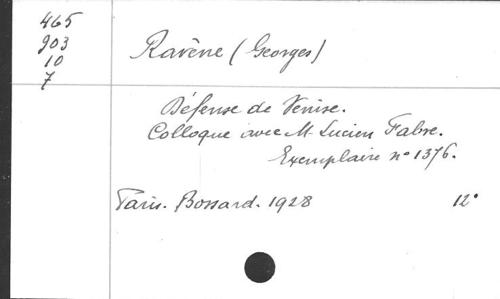 465
903
10
7
Ravène (Georges)
Défense de Venise.
Colloque avec M. Lucien Fabre.
Exemplaire n° 1376.
Paris. Bossard. 1928 12°